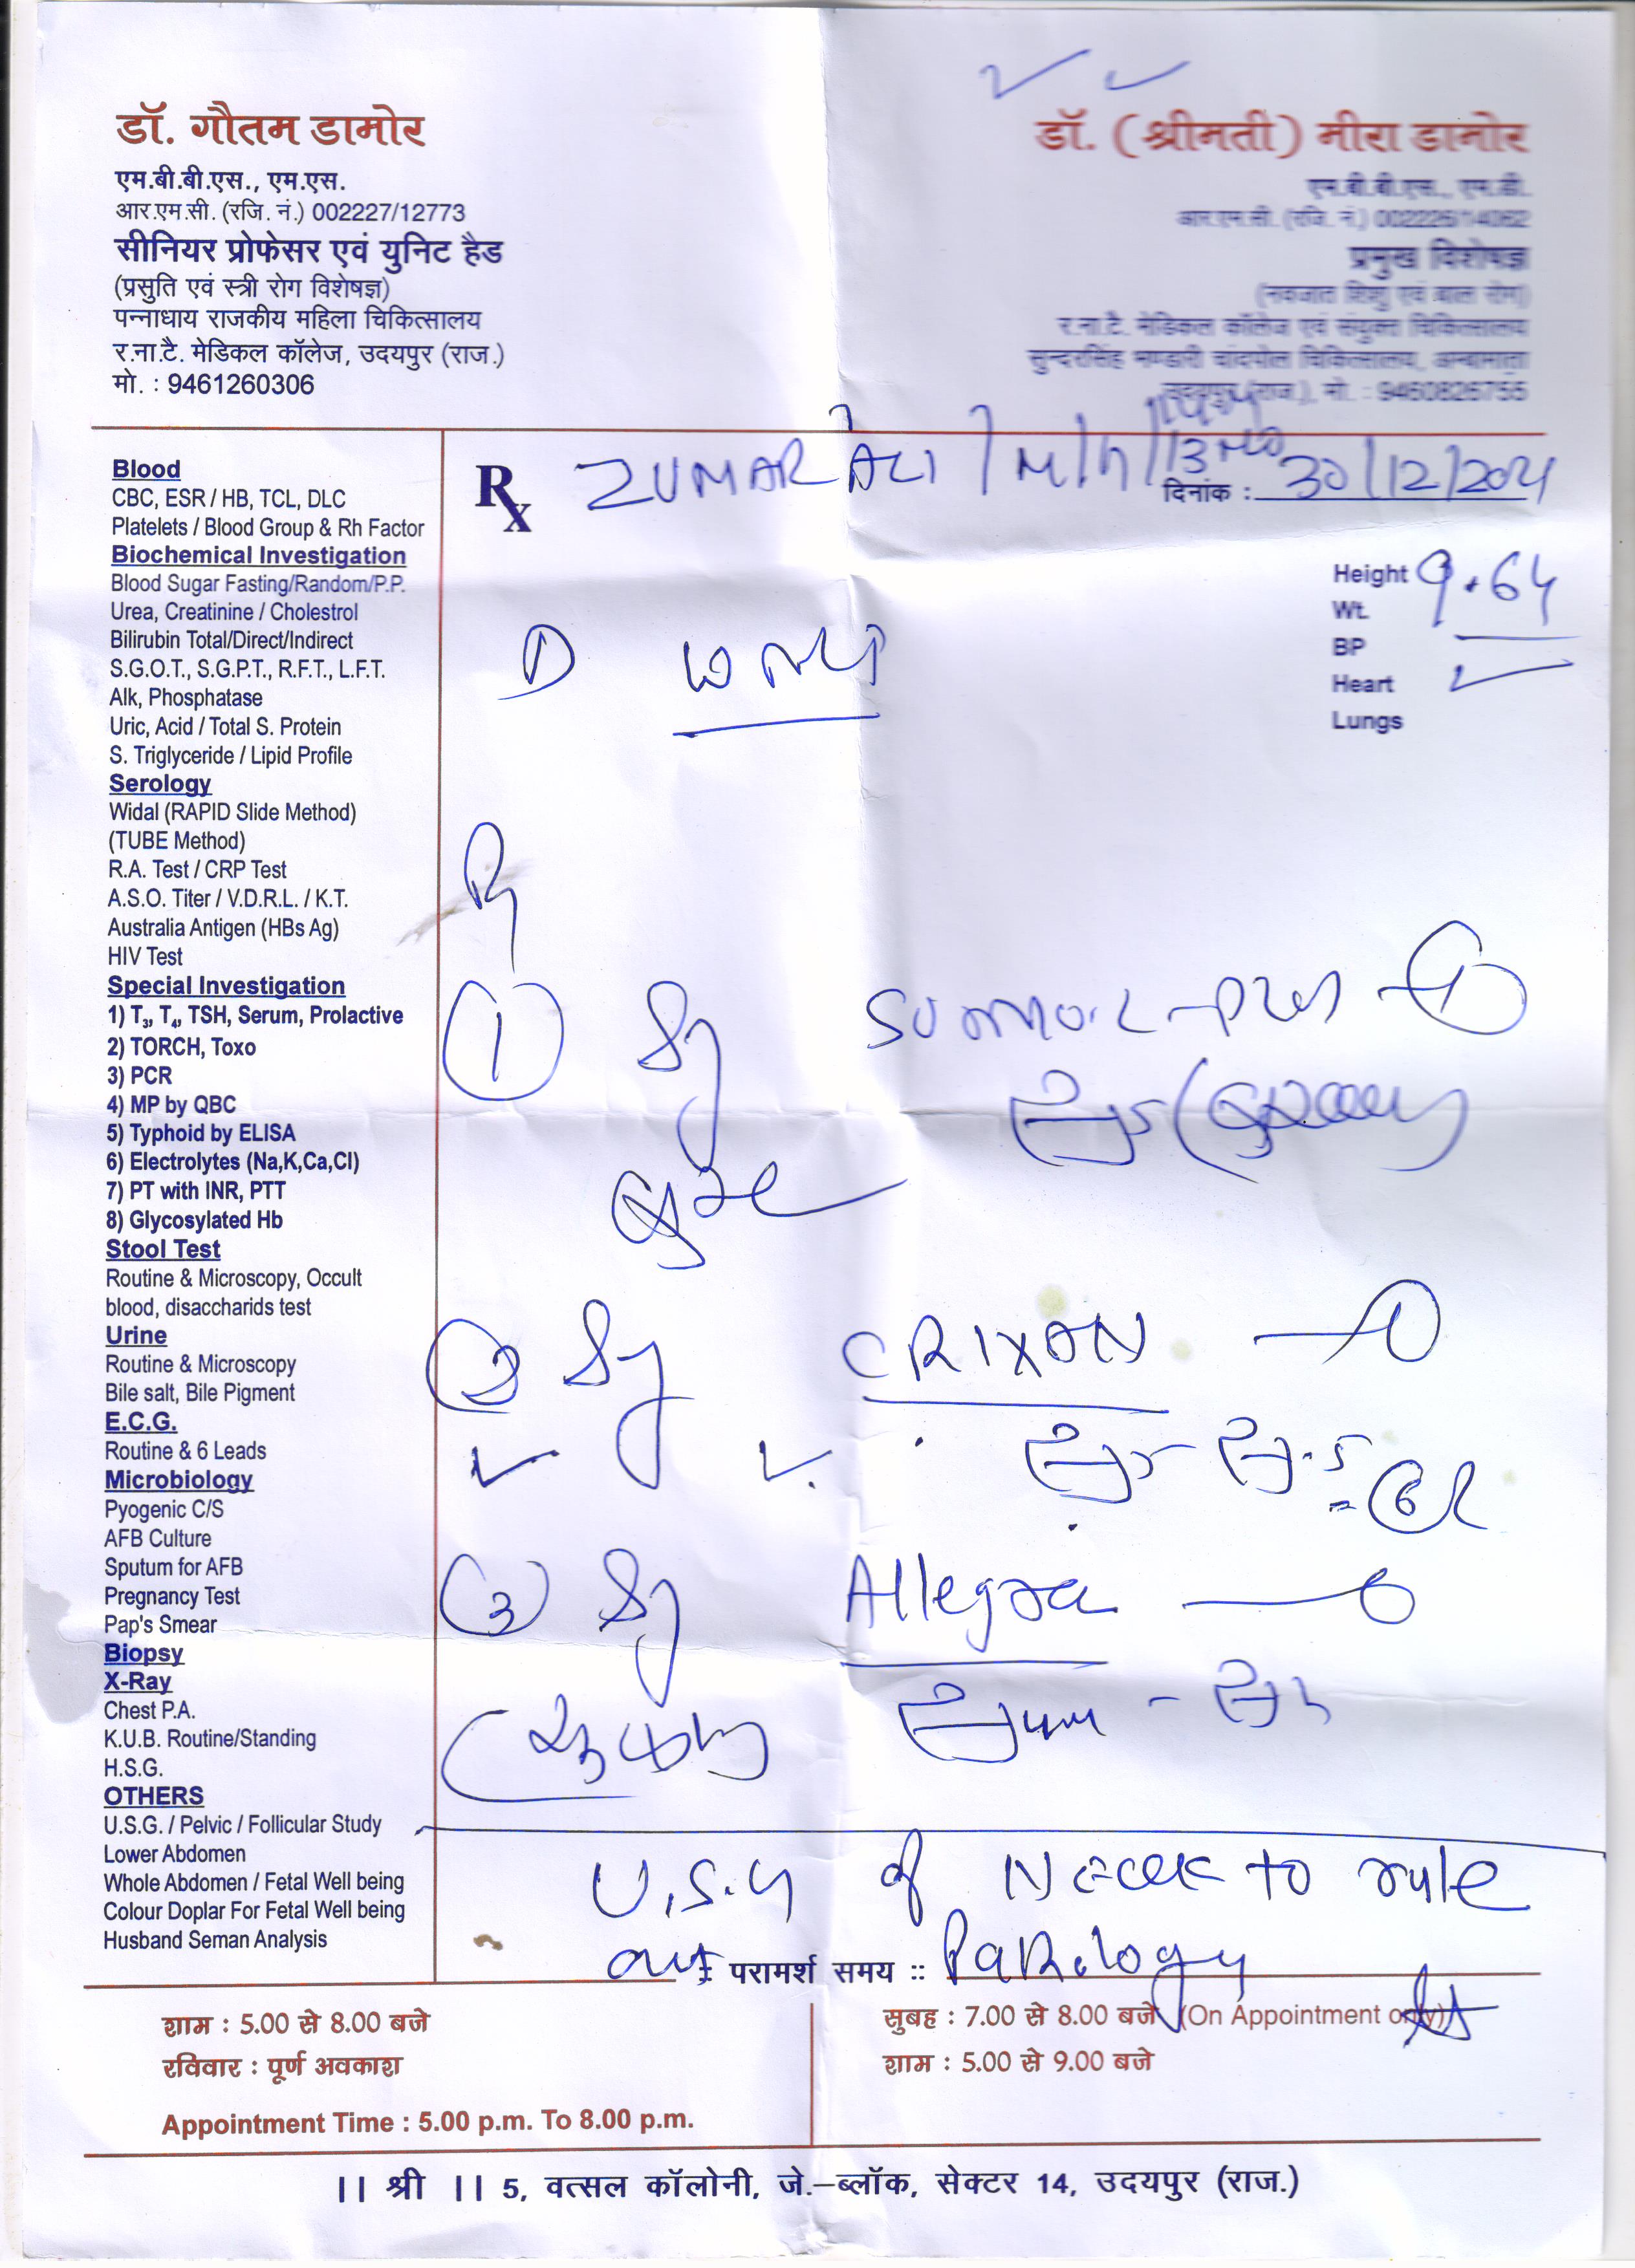 डॉ. गौतम डामोर
एम.बी.बी.एस., एम.एस.
आर.एम.सी. (रजि. नं.) 002227/12773
सीनियर प्रोफेसर एवं युनिट हैड
(प्रसुति एवं स्त्री रोग विशेषज्ञ)
पन्नाधाय राजकीय महिला चिकित्सालय
र.ना.टै. मेडिकल कॉलेज, उदयपुर (राज.)
मो. : 9461260306
डॉ. (श्रीमती) मीरा डामोर
एम.बी.बी.एस., एम.डी.
आर.एम.सी. (रजि. नं.) 002226/14062
प्रमुख विशेषज्ञ
(नवजात शिशु एवं बाल रोग)
र.ना.टै. मेडिकल कॉलेज एवं संयुक्त चिकित्सालय
सुन्दरसिंह भण्डारी चांदपोल चिकित्सालय, अम्बामाता
उदयपुर (राज.), मो. : 9460826755
Blood
CBC, ESR / HB, TCL, DLC
Platelets / Blood Group & Rh Factor
Biochemical Investigation
Blood Sugar Fasting/Random/P.P.
Urea, Creatinine / Cholestrol
Bilirubin Total/Direct/Indirect
S.G.O.T., S.G.P.T., R.F.T., L.F.T.
Alk, Phosphatase
Uric, Acid / Total S. Protein
S. Triglyceride / Lipid Profile
Serology
Widal (RAPID Slide Method)
(TUBE Method)
R.A. Test / CRP Test
A.S.O. Titer / V.D.R.L. / K.T.
Australia Antigen (HBs Ag)
HIV Test
Special Investigation
1) T₃, T₄, TSH, Serum, Prolactive
2) TORCH, Toxo
3) PCR
4) MP by QBC
5) Typhoid by ELISA
6) Electrolytes (Na,K,Ca,Cl)
7) PT with INR, PTT
8) Glycosylated Hb
Stool Test
Routine & Microscopy, Occult
blood, disaccharids test
Urine
Routine & Microscopy
Bile salt, Bile Pigment
E.C.G.
Routine & 6 Leads
Microbiology
Pyogenic C/S
AFB Culture
Sputum for AFB
Pregnancy Test
Pap's Smear
Biopsy
X-Ray
Chest P.A.
K.U.B. Routine/Standing
H.S.G.
OTHERS
U.S.G. / Pelvic / Follicular Study
Lower Abdomen
Whole Abdomen / Fetal Well being
Colour Doplar For Fetal Well being
Husband Seman Analysis
Rx ZUMAR ALI / M /
दिनांक : 30/12/2024
Height 9.64
Wt.
BP
Heart
Lungs
Rx
1 Sy
2 Sy CRIXAN
3 Sy Allegra
U.S.G of Neck to rule
out Pathology
:: परामर्श समय ::
शाम : 5.00 से 8.00 बजे
रविवार : पूर्ण अवकाश
Appointment Time : 5.00 p.m. To 8.00 p.m.
सुबह : 7.00 से 8.00 बजे (On Appointment only)
शाम : 5.00 से 9.00 बजे
|| श्री || 5, वत्सल कॉलोनी, जे.–ब्लॉक, सेक्टर 14, उदयपुर (राज.)